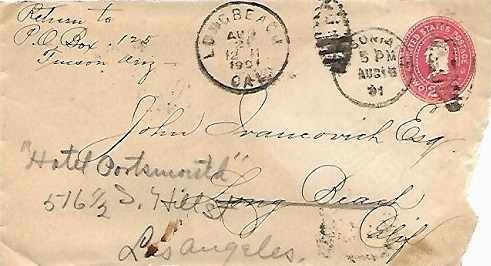 Return to
P.O. Box 125
Tucson Ariz
LONG BEACH
AUG
12 M
1901
CAL
5 PM
AUG 18
01
UNITED STATES POSTAGE
John Ivancovich Esq.
"Hotel Portsmouth"
516 1/2 S. Hill St
Long Beach
Calif
Los Angeles.